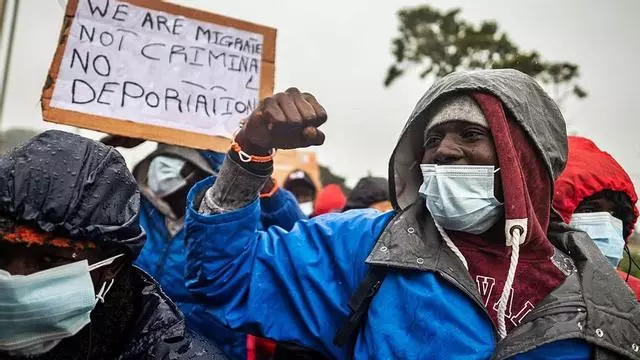 WE ARE MIGRATE
NOT CRIMINAL
NO
DEPORTATION